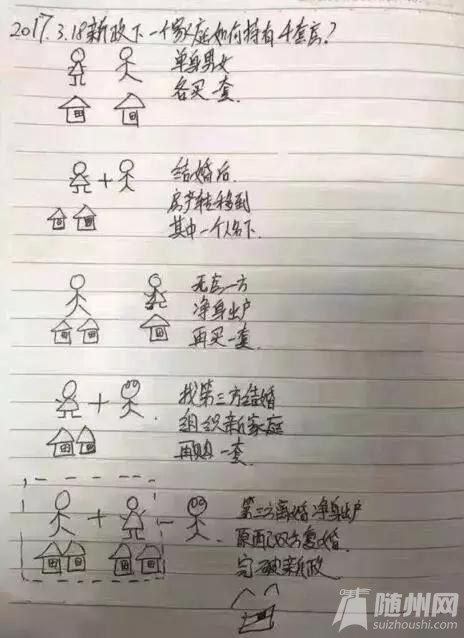 2017.3.18新政下一个家庭如何持有4套房?
单身男女
各买一套.
结婚后.
房产转移到
其中一个人名下.
无房一方
净身出户
再买一套.
找第三方结婚
组织新家庭
再购一套.
第三方离婚净身出户
原配双方复婚.
完破新政
随州网
suizhoushi.com